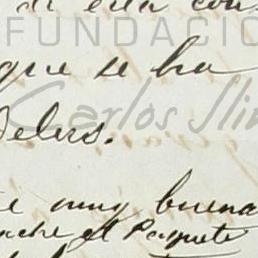 de esta con
FUNDACIÓ
que se ha
Carlos Slim
muy buena
noche el Paquete